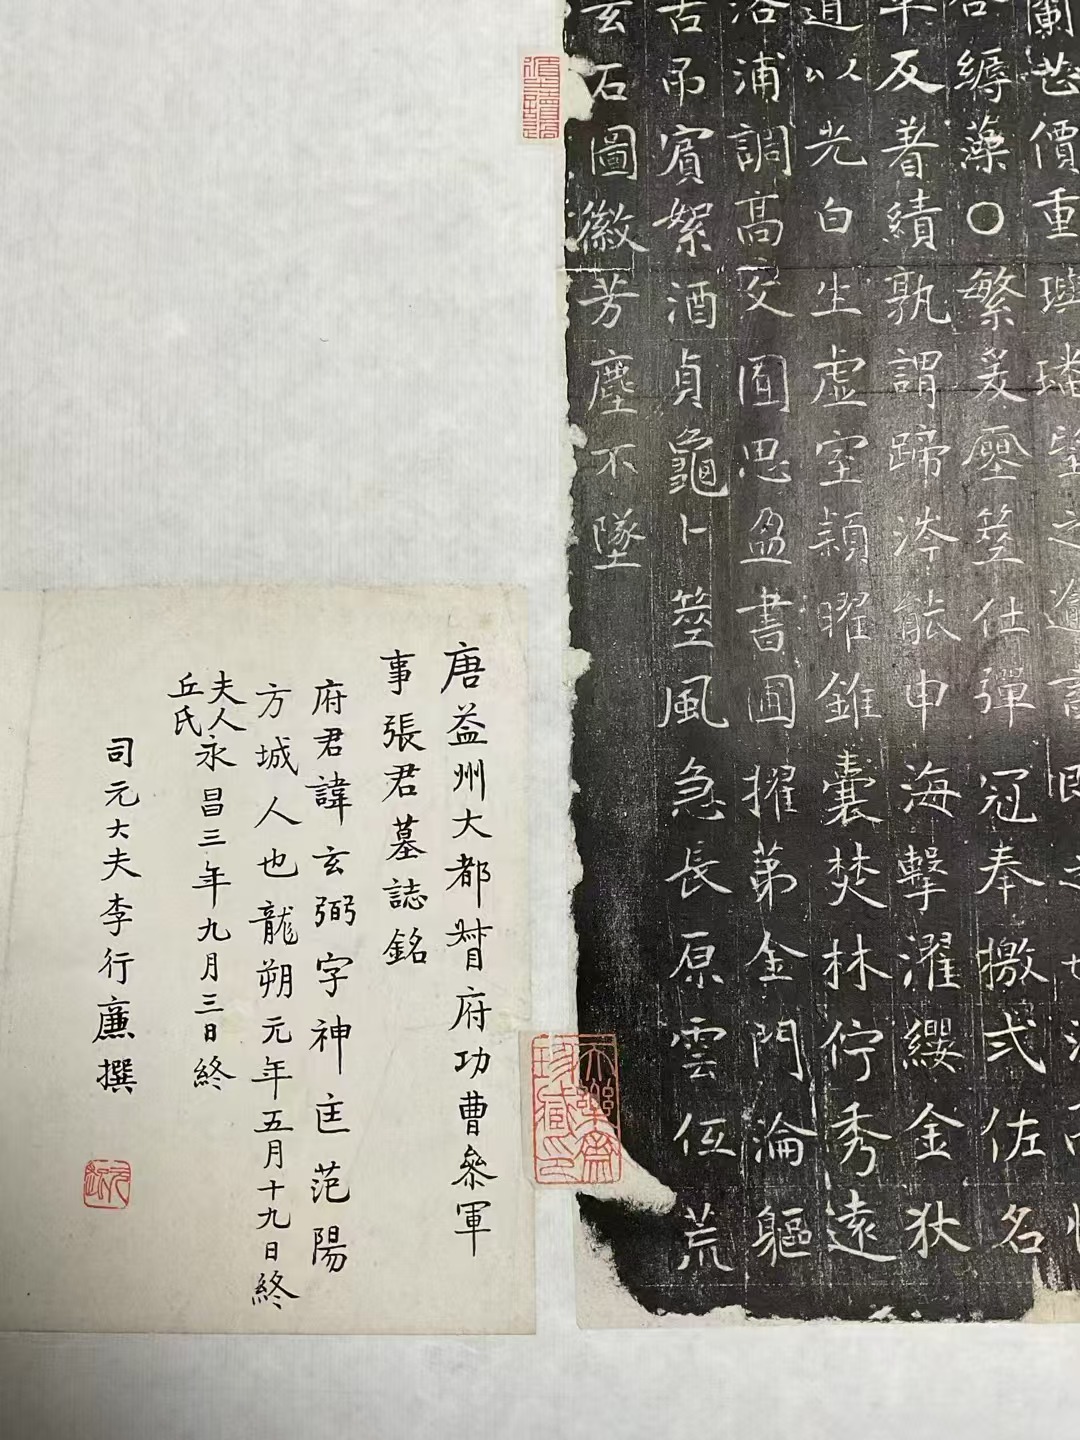 闌芭價重璵璠望之遺
容縟藻○繁爰壓筮仕彈冠奉檄弐佐名
卒反著績孰謂蹄涔能申海擊濯纓金狄
道以光白生虛室穎曜錐囊焚林佇秀遠
洛浦調高文囿思盈書圃擢第金門淪軀
古吊賓絮酒貞龜卜筮風急長原雲低荒
玄石圖徽芳塵不墜
唐益州大都督府功曹叅軍
事張君墓誌銘
府君諱玄弼字神匡范陽
方城人也龍朔元年五月十九日終
夫人丘氏永昌三年九月三日終
司元大夫李行廉撰